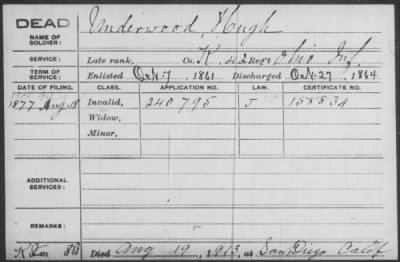 DEAD Underwood, Hugh
NAME OF SOLDIER:
SERVICE: Late rank, Co. K, 42 Reg't Ohio Inf.
TERM OF SERVICE: Enlisted Oct. 7, 1861 Discharged Oct. 27, 1864
DATE OF FILING. CLASS. APPLICATION NO. LAW. CERTIFICATE NO.
1877 Aug. 18 Invalid, 240795 J 158834
Widow,
Minor,
ADDITIONAL SERVICES:
REMARKS:
Died Aug 19, 1913, at San Diego Calif